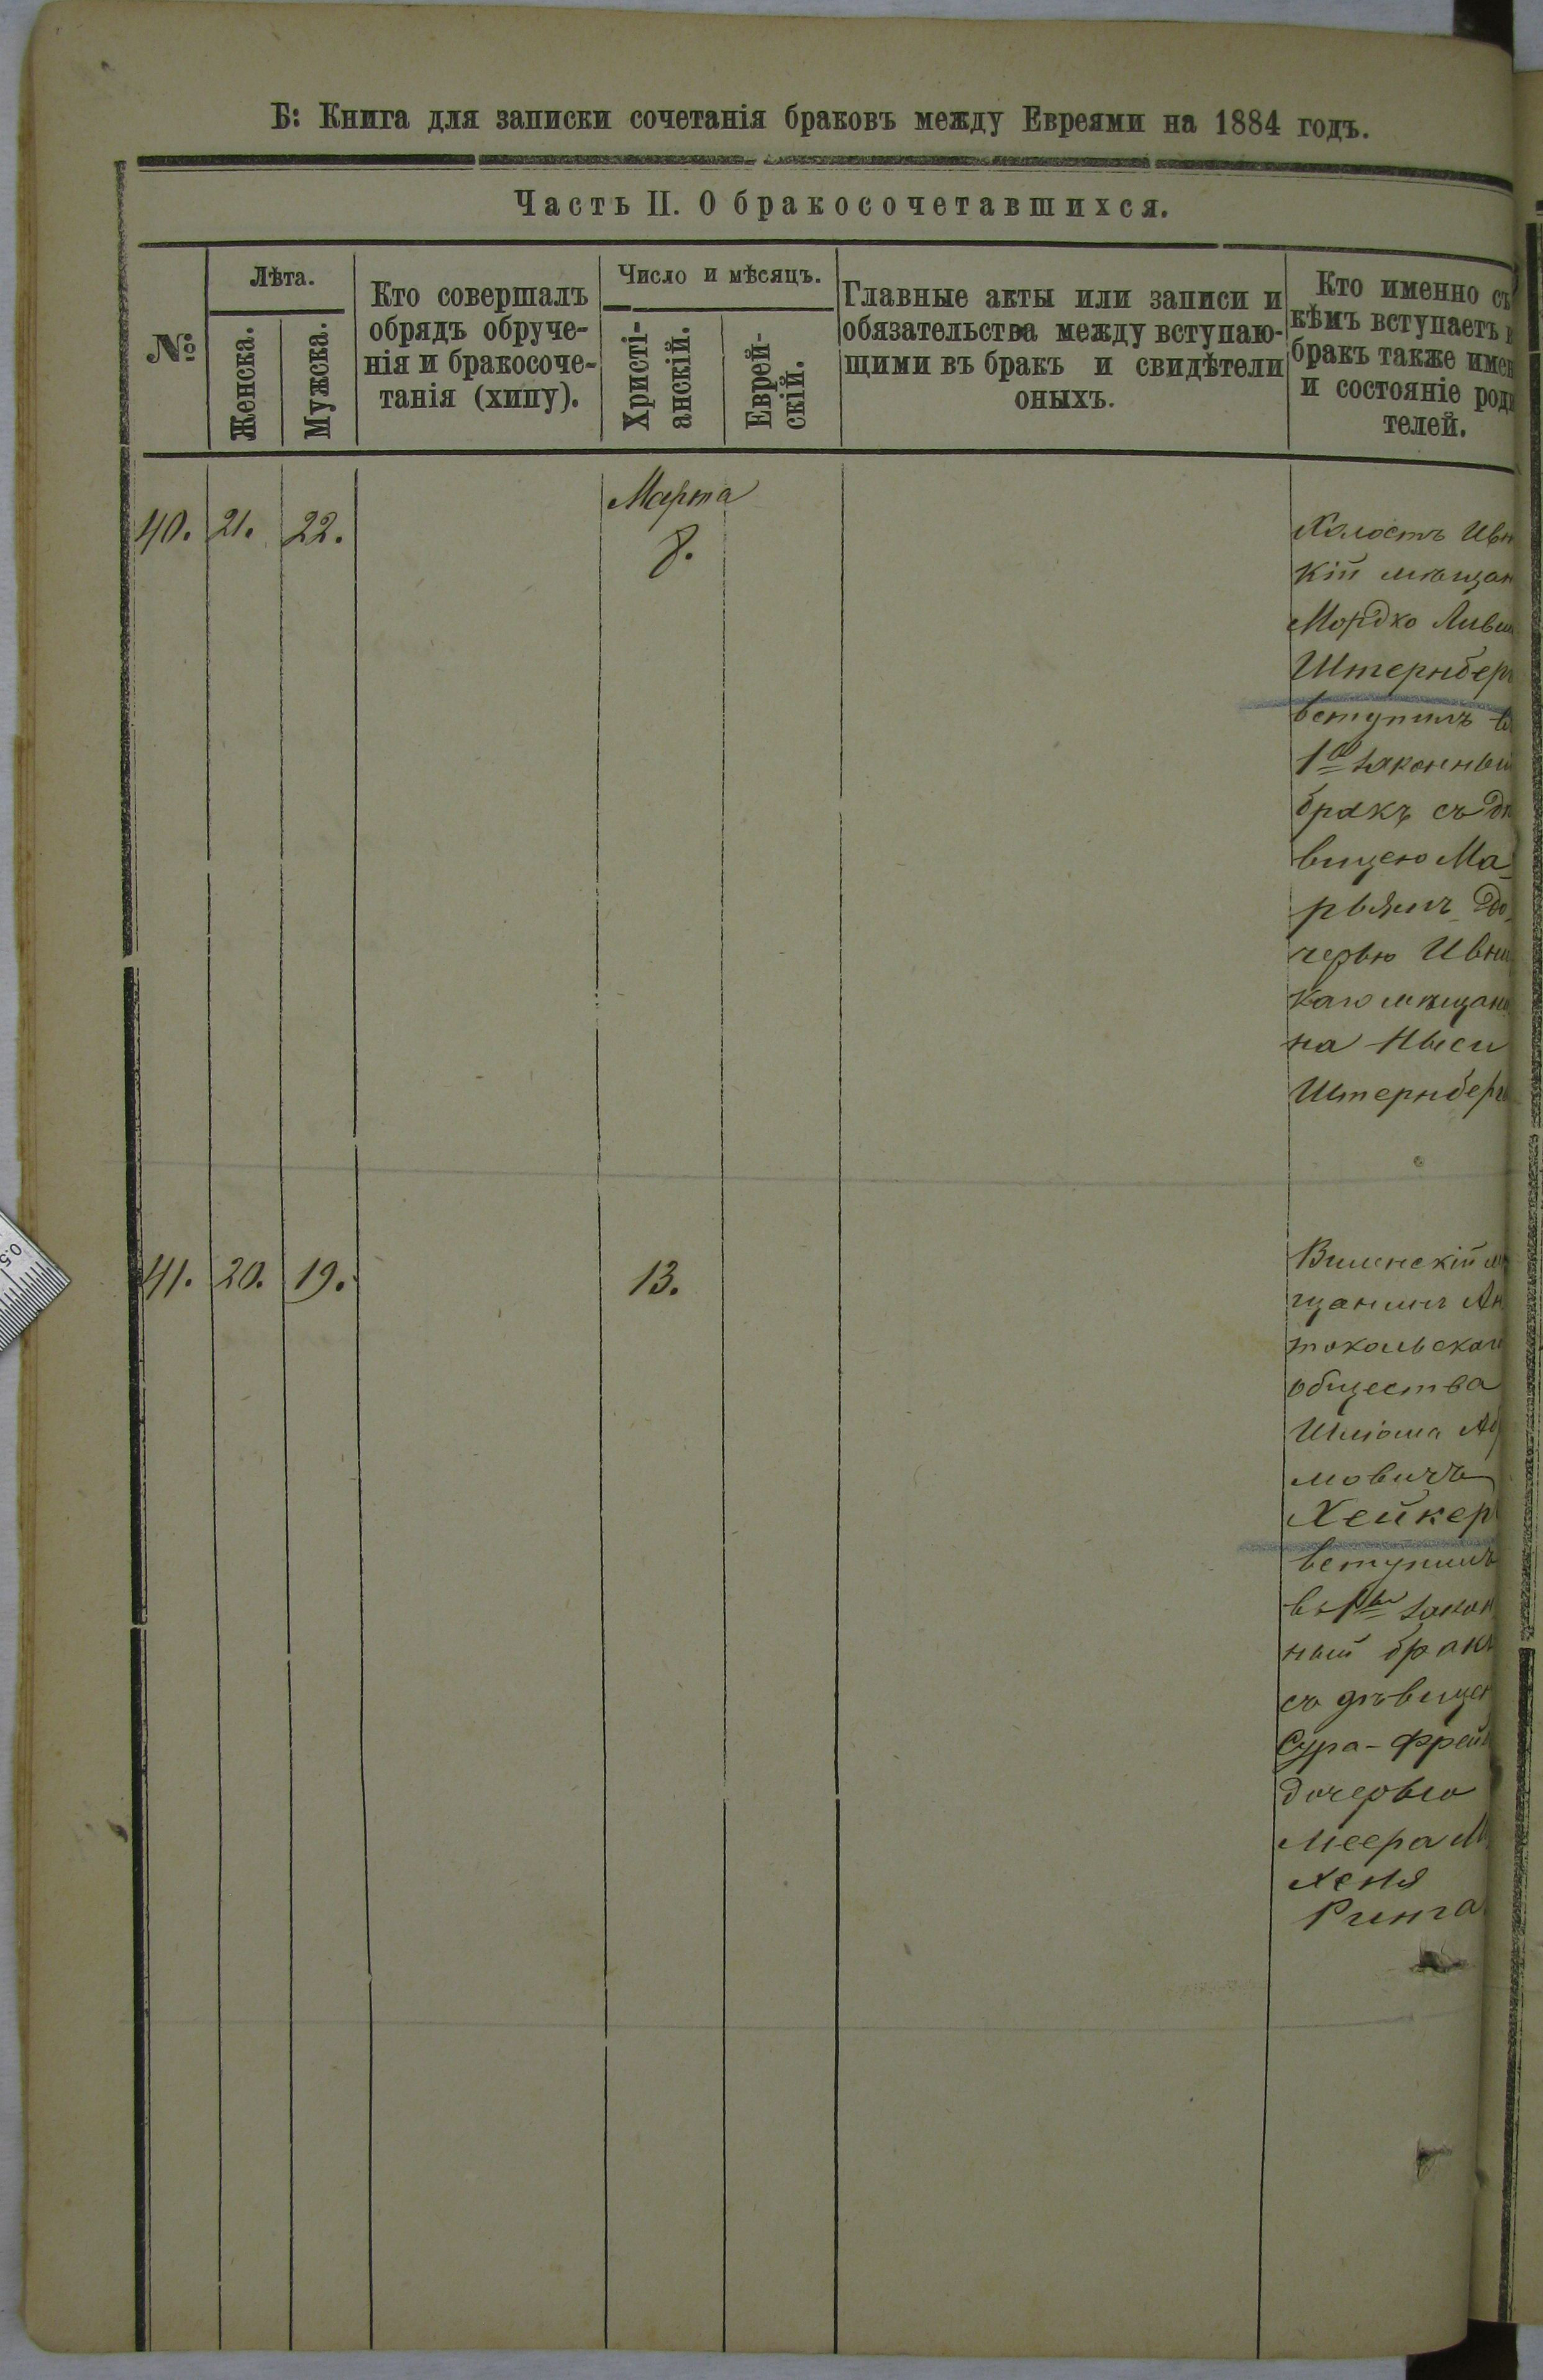 Б: Книга для записки сочетанія браковъ между Евреями на 1884 годъ.
Часть II. О бракосочетавшихся.
№
Лѣта.
Женска.
Мужска.
Кто совершалъ
обрядъ обруче-
нія и бракосоче-
танія (хипу).
Число и мѣсяцъ.
Христі-
анскій.
Еврей-
скій.
Главные акты или записи и
обязательства между вступаю-
щими въ бракъ и свидѣтели
оныхъ.
Кто именно съ
кѣмъ вступаетъ в
бракъ также имен
и состояніе роди
телей.
Марта
40. 21. 22. 8.
Холостъ Ивн
кій мѣщан
Мордхо
Штернбер
вступилъ в
1й законный
бракъ съ дѣ
вицею Ма-
рьямъ до-
черью Ивни
каго мѣщани
на
Штернберг
41. 20. 19. 13.
Виленскій м
щанинъ Ан
токольскаго
общества
Шліома
мовичъ
Хейкер
вступилъ
въ 1ый закон
ный бракъ
съ дѣвицею
Сура-Фрей
дочерью
Меера М
хеля
Ринга
0.5